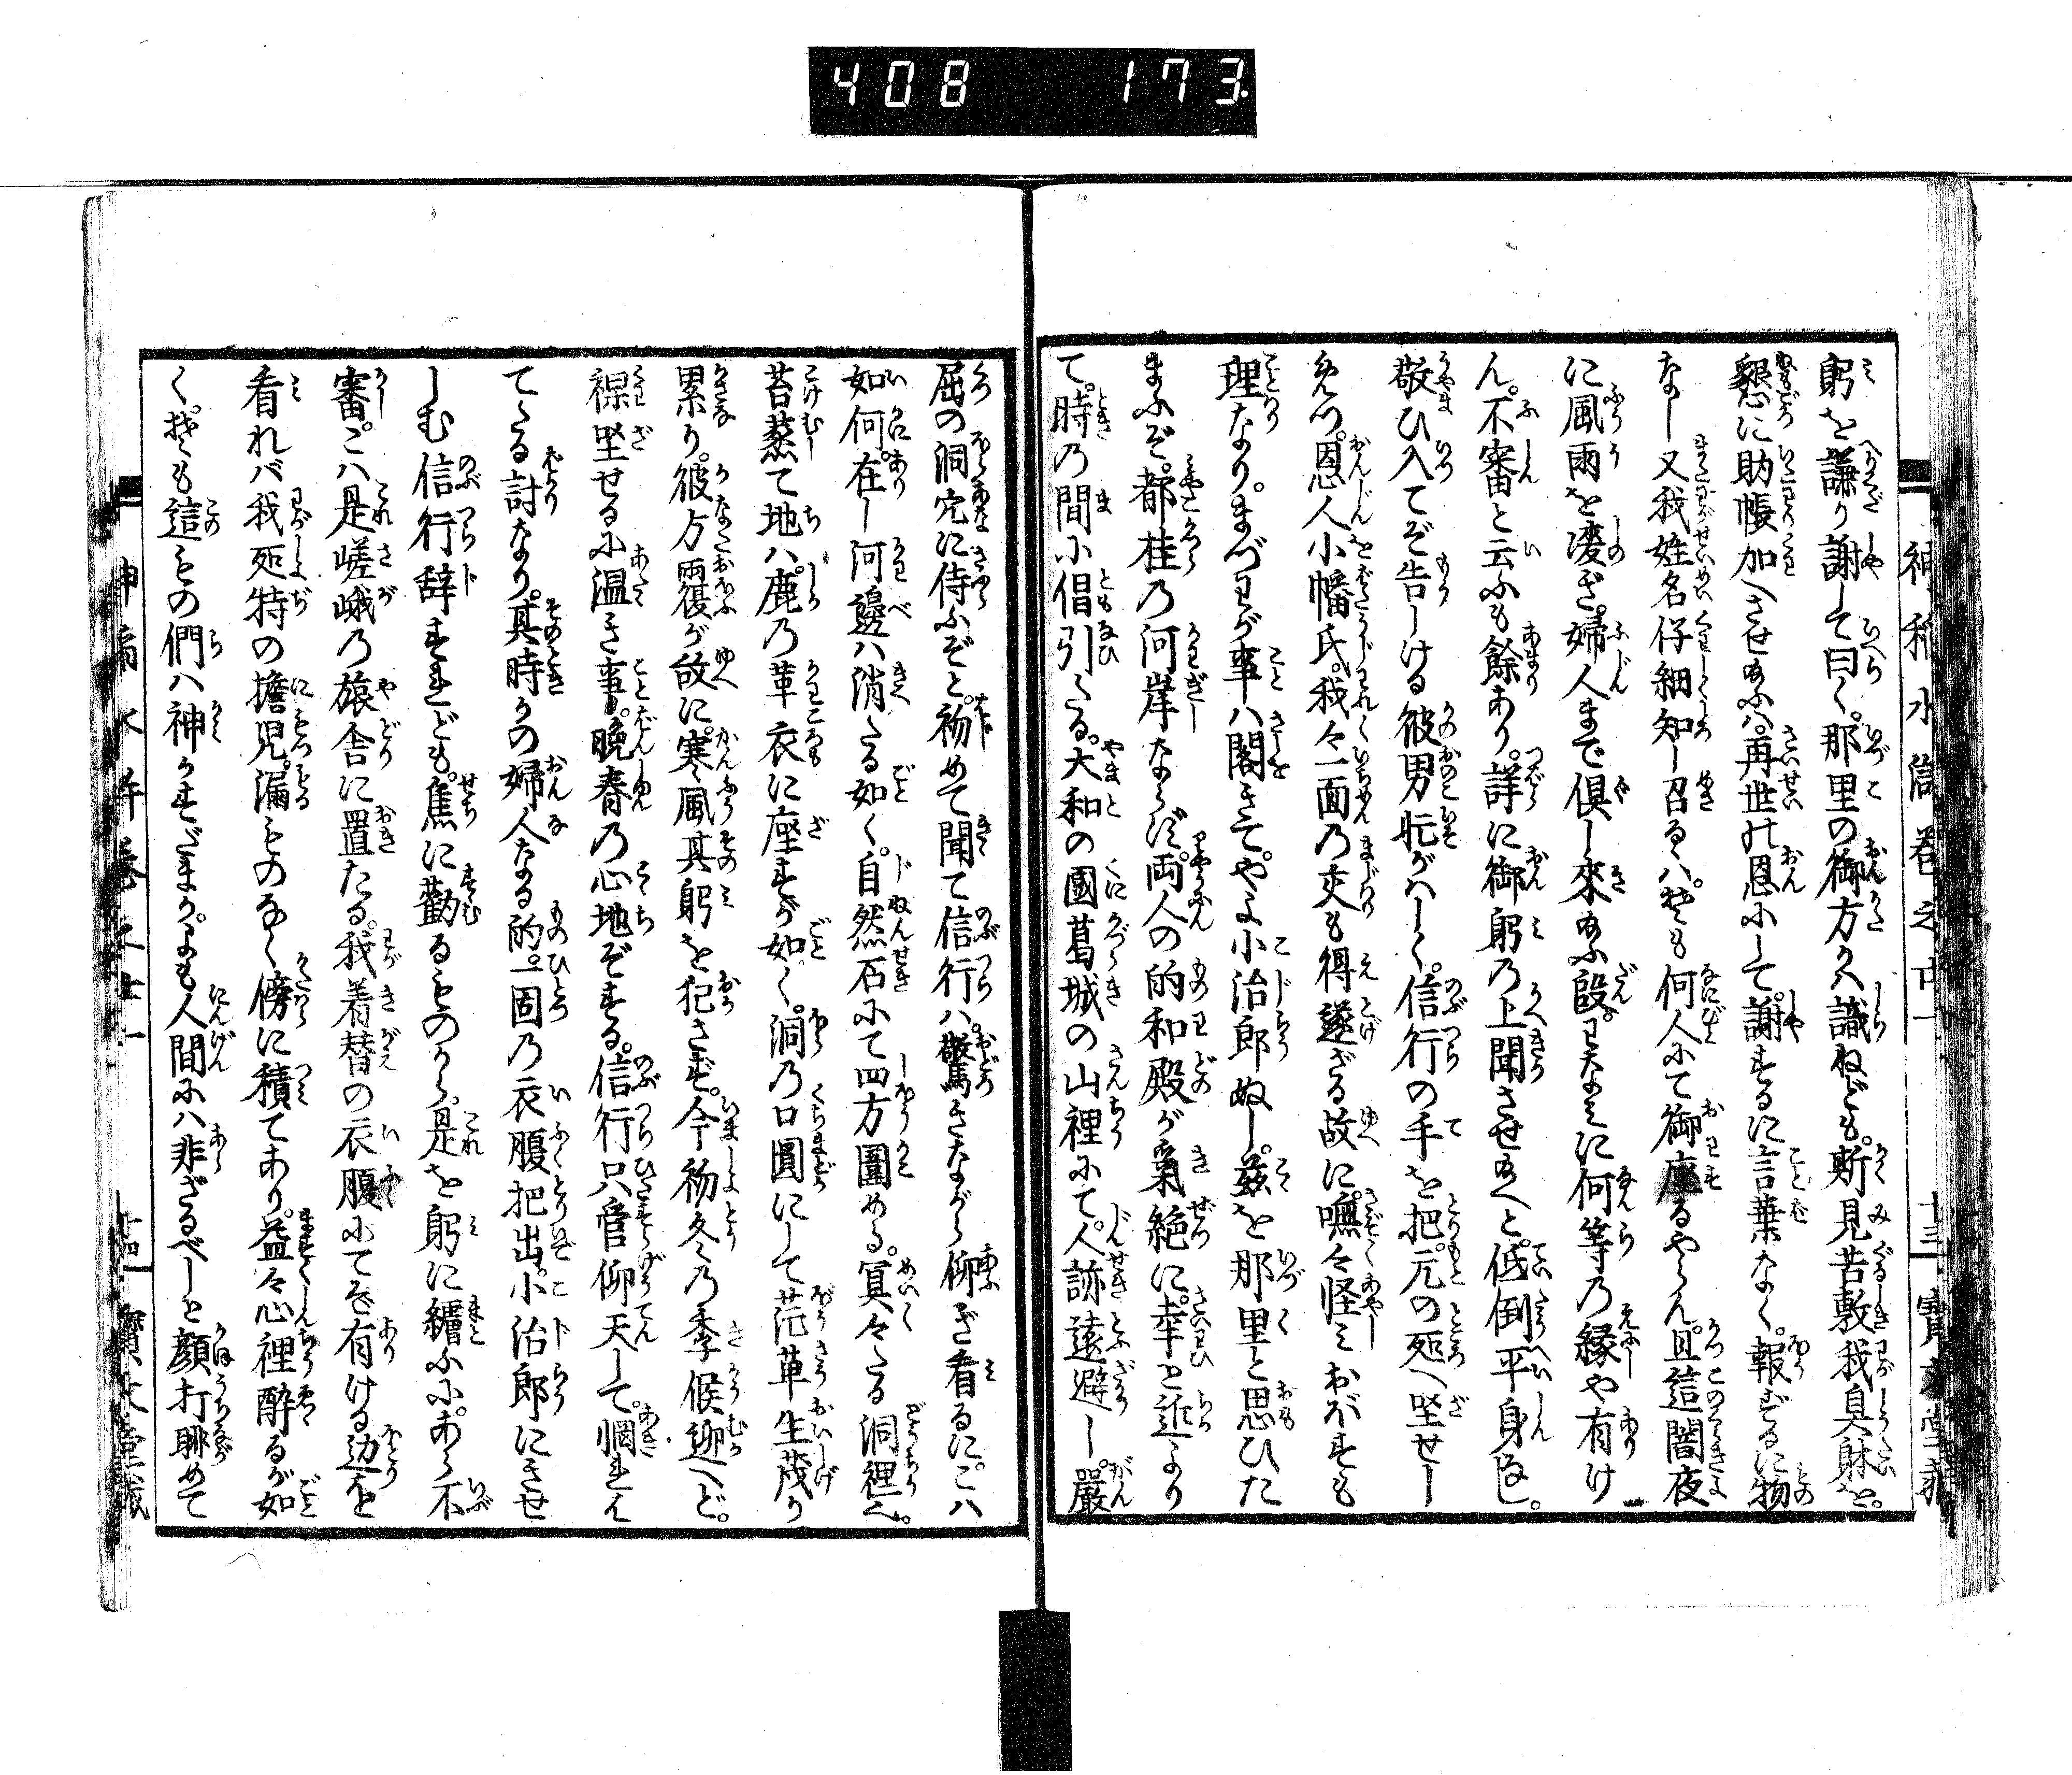 408 173
躬を謙り謝して曰く。那里の御方かハ識ねども。斯見苦敷我臭躰を。
懇に助帳加へさせ給ふハ。再世の恩にして。謝するに言葉なく。報ずるに物
なし又我姓名仔細知し召るハ。そも何人にて御座るやらん。且這闇夜
に風雨を凌ぎ。婦人まで倶し來給ふ段。わたくしに何等乃縁や有け
ん。不審と云ふも餘あり。詳に御躬乃上聞させ給へと。低倒平身なし。
敬ひ入てぞ告しける彼男忙がハしく。信行の手を把元の処へ坐せし
めつ。恩人小幡氏。我々一面乃交も得遂ざる故に。嘸々怪ミおぼすも
理なり。まづわが事ハ閣きて。やよ小治郎ぬし。茲を那里と思ひた
まふぞ。都桂乃河岸ならず。両人の的和殿が氣絶に。幸と近より
て。時の間に倡引たる。大和の國葛城の山裡にて。人跡遠避し。嚴
屈の洞穴に侍ふぞと。初めて聞て信行ハ。驚きながら仰ぎ看るに。こハ
如何。在し河邊ハ消たる如く。自然石にて四方圍める。冥々たる洞裡へ。
苔蒸て地ハ。鹿乃革衣に座すが如く。洞乃口圓にして茫草生茂り
累り。彼方覆が故に。寒風其躬を犯さず。今初冬乃季候迎へど。
裸坐せるに温き事。晩春乃心地ぞする。信行只管仰天して。惘れは
てたる討なり。其時かの婦人なる的。一固乃衣腹把出。小治郎にきせ
しむ信行辞すれども。焦に勸るものから。是を躬に纏ふに。あら不
審。こハ是嵯峨乃旅舎に置たる。我着替の衣腹にてぞ有ける辺を
看れバ我処特の擔児。漏ものなく傍に積てあり。益々心裡酔るが如
く。そも這ものの們ハ神かまだまか。よも人間にハ非ざるべしと顔打眺めて